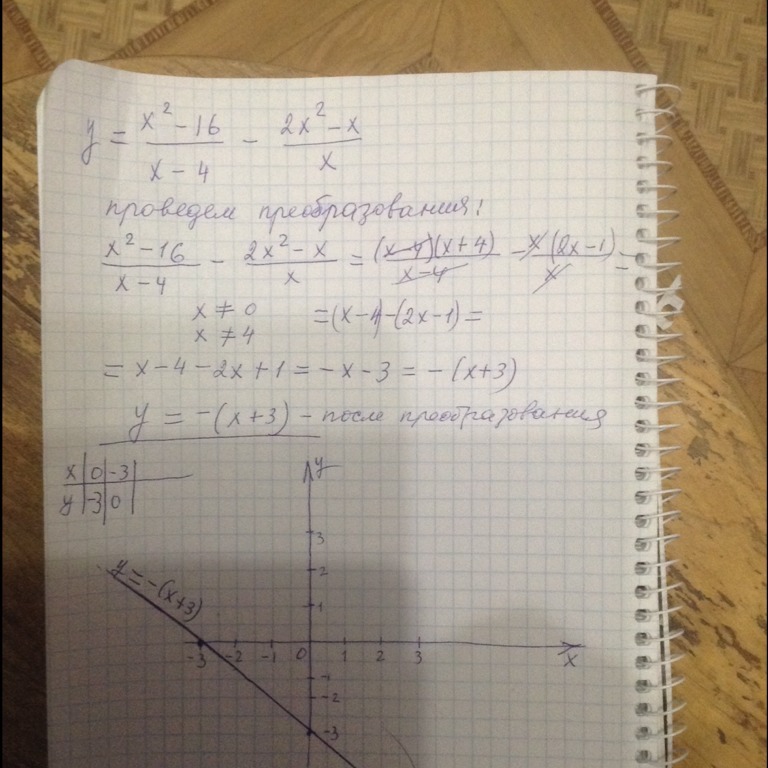 y = \frac{x^2-16}{x-4} - \frac{2x^2-x}{x}
проведем преобразования:
\frac{x^2-16}{x-4} - \frac{2x^2-x}{x} = \frac{(x-4)(x+4)}{x-4} - \frac{x(2x-1)}{x} =
x ≠ 0 =(x-4)-(2x-1)=
x ≠ 4
= x-4-2x+1 = -x-3 = -(x+3)
y = -(x+3) - после преобразования
x | 0 | -3
y | -3 | 0
y
3
2
1
y = -(x+3)
-3 -2 -1 0 1 2 3 x
-1
-2
-3